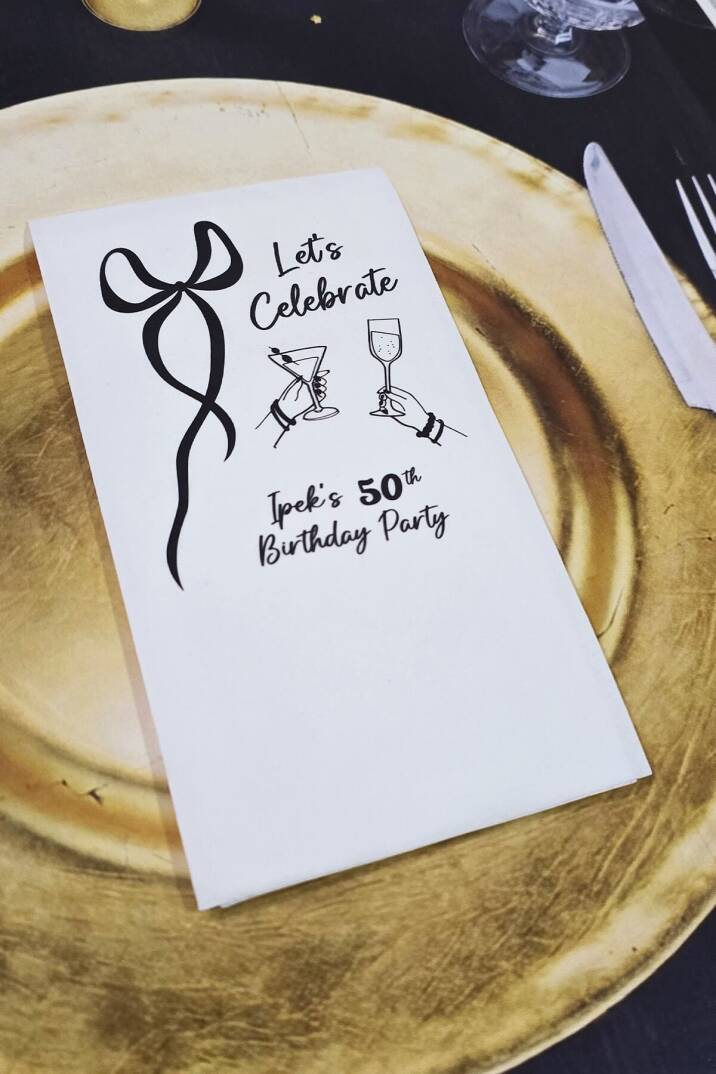 Let's
Celebrate
Ipek's 50th
Birthday Party